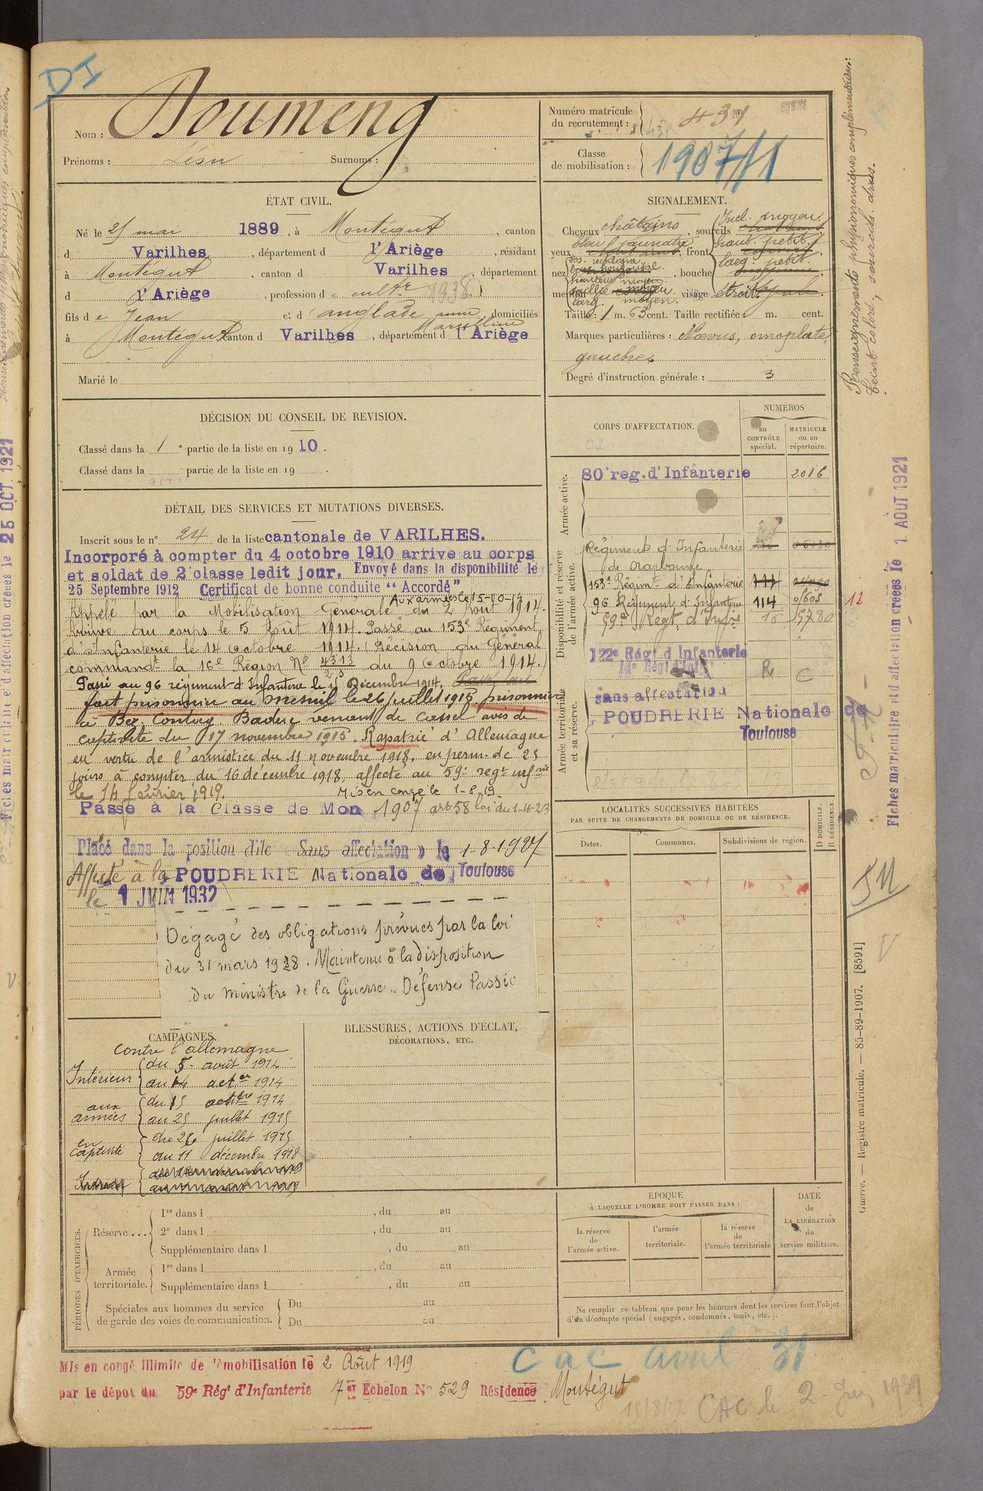 DI
Nom : Doumeng
Prénoms : Léon Surnoms :
Numéro matricule du recrutement : 437
Classe de mobilisation : 1907/1
ÉTAT CIVIL.
Né le 21 mai 1889, à Montégut, canton
d Varilhes, département d l'Ariège, résidant
à Montégut, canton d Varilhes, département
d l'Ariège, profession d e cultr 1938
fils d e Jean et d anglade, domiciliés
à Montégut canton d Varilhes, département d l'Ariège
Marié le
SIGNALEMENT.
Cheveux châtains, sourcils
yeux, front
nez, bouche
menton, visage
Taille : 1 m. 63 cent. Taille rectifiée m. cent.
Marques particulières : Nævus, omoplate
gauche
Degré d'instruction générale : 3
Renseignements physionomiques complémentaires:
teint coloré, sourcils drus.
DÉCISION DU CONSEIL DE REVISION.
Classé dans la 1 e partie de la liste en 1910.
Classé dans la partie de la liste en 19
DÉTAIL DES SERVICES ET MUTATIONS DIVERSES.
Inscrit sous le n° 24 de la liste cantonale de VARILHES.
Incorporé à compter du 4 octobre 1910 arrive au corps
et soldat de 2e classe ledit jour. Envoyé dans la disponibilité le
25 Septembre 1912 Certificat de bonne conduite "Accordé"
Aux armées le 15-10-14
Appelé par la Mobilisation Générale du 2 Août 1914.
Arrivé au corps le 5 Août 1914. Passé au 153e Régiment
d'Infanterie le 14 Octobre 1914. (Décision du Général
commandt la 16e Région No 4313 du 9 Octobre 1914.)
Passé au 96 régiment d'Infanterie le 1er Décembre 1914,
fait prisonnier au Mesnil le 26 juillet 1915 prisonnier
venant de Cassel avis de
captivité du 17 novembre 1915. Rapatrié d'Allemagne
en vertu de l'armistice du 11 novembre 1918, en perm. de 25
jours à compter du 16 décembre 1918, affecté au 59e regt infrie
le 14 février 1919. Mis en congé le 1-8-19
Passé à la Classe de Mon 1907 art 58 loi du 1-4-23
Placé dans la position dite "Sans affectation" le 1-8-1927
Affecté à la POUDRERIE Nationale de Toulouse
le 1 JUIN 1932
Dégagé des obligations prévues par la loi
du 31 mars 1928. Maintenu à la disposition
du ministre de la Guerre. Défense Passive
CORPS D'AFFECTATION.
NUMÉROS
au CONTRÔLE spécial.
MATRICULE ou au répertoire.
Armée active.
80e reg. d'Infanterie 2016
Disponibilité et réserve de l'armée active.
Régiment d'Infanterie
de Narbonne
153e Régimt d'Infanterie
96 Régiment d'Infanterie 114
59e Régt d'Infie 15
122e Régt d'Infanterie
R C
Armée territoriale et sa réserve.
sans affectation
POUDRERIE Nationale de
Toulouse
LOCALITÉS SUCCESSIVES HABITÉES
PAR SUITE DE CHANGEMENTS DE DOMICILE OU DE RÉSIDENCE.
Dates. Communes. Subdivisions de région. D DOMICILE. R RÉSIDENCE.
CAMPAGNES.
Contre l'allemagne
Intérieur du 5 août 1914
au 14 octre 1914
aux armées du 15 octbre 1914
au 25 juillet 1915
en captivité du 26 juillet 1915
au 11 décembre 1918
BLESSURES, ACTIONS D'ÉCLAT,
DÉCORATIONS, ETC.
PÉRIODES D'EXERCICES.
Réserve ... 1re dans l , du au
2e dans l , du au
Supplémentaire dans l , du au
Armée territoriale. 1re dans l , du au
Supplémentaire dans l , du au
Spéciales aux hommes du service de garde des voies de communication. Du au
Du au
ÉPOQUE
À LAQUELLE L'HOMME DOIT PASSER DANS :
la réserve de l'armée active.
l'armée territoriale.
la réserve de l'armée territoriale
DATE de LA LIBÉRATION du service militaire.
Ne remplir ce tableau que pour les hommes dont les services font l'objet
d'un décompte spécial (engagés, condamnés, omis, etc.).
Mis en congé illimité de démobilisation le 2 Août 1919
par le dépôt du 59e Régt d'Infanterie 7er Échelon No 529 Résidence Montégut
CAC avril 31
CAC le 2 1939
Fiches matriculaire et d'affectation créées le 1 AOUT 1921
Guerre. — Registre matricule. — 85-89-1907. [8591]
25 OCT. 1921